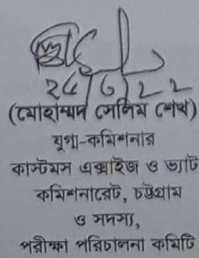 ২৫/৬/২২
(মোহাম্মদ সেলিম শেখ)
যুগ্ম-কমিশনার
কাস্টমস এক্সাইজ ও ভ্যাট
কমিশনারেট, চট্টগ্রাম
ও সদস্য,
পরীক্ষা পরিচালনা কমিটি